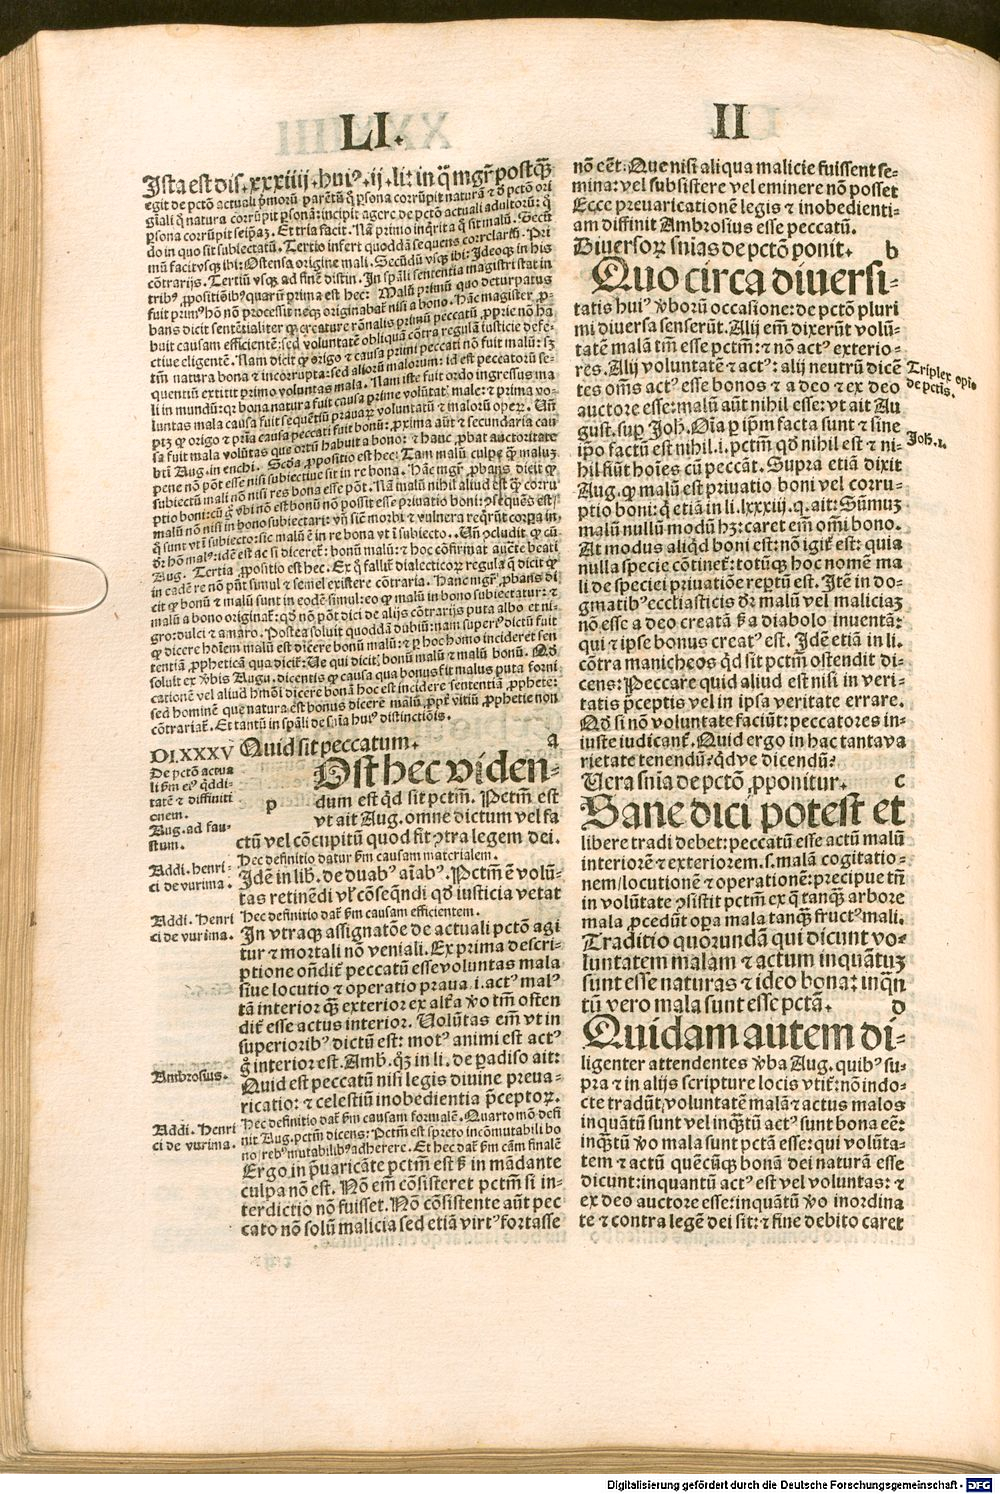 LI.
II
Ista est dis. xxxiiij. huiꝰ. ij. li: in q̄ mgr̄ postq̄ꝫ
egit de pctō actuali p̄morū parētū q̄ ꝑsona corrūpit naturā ⁊ d̓ pctō ori
gīali q̄ natura corrūpit ꝑsonā: incipit agere de pctō actuali adultorū: q̄
ꝑsona corrūpit seip̄aꝫ. Et tria facit. Nā primo inq̄rit a q̄ sit malū. Secū
do in quo sit sublectatū. Tertio infert quoddā sequens correlariū. Pri
mū facit vsq̄ ibi: Ostensa origine mali. Secūdū vsq̄ ibi: Ideoq̄ in his
cōtrarijs. Tertiū vsq̄ ad finē distin. In sp̄ali sententia magistri stat in
tribꝰ ꝓpositiōibꝰ quarū prima est hec: Malū primū quo deturpatus
fuit primꝰ hō nō processit neq̄ originabat̄ nisi a bono. Hāc magister ꝓ-
bans dicit sentētialiter ꝙ creature rōnalis primū peccatū ꝓprie nō ha
buit causam efficientē: sed voluntatē obliquā cōtra regulā iusticie defe-
ctiue eligentē. Nam dicit ꝙ origo ⁊ causa primi peccati nō fuit malū: sꝫ
tm̄ natura bona ⁊ incorrupta: sed aliorū malorum: id est peccatorū se-
quentiū extitit primo voluntas mala. Nam iste fuit ordo ingressus ma
li in mundū: qꝛ bona natura fuit causa prime volūtatꝭ male: ⁊ prima vo-
luntas mala causa fuit sequētiū prauarꝫ voluntatū ⁊ malorū operꝫ. Un̄
ptꝫ ꝙ origo ⁊ pria causa peccati fuit bonū: ꝓxima aūt ⁊ secundaria cau
sa fuit mala voluntas que ortū habuit a bono: ⁊ hanc ꝓbat auctoritate
bti Aug. in enchi. Secda ꝓpositio est hec: Tam malū culpe q̄ꝫ maluꝫ
pene nō pōt esse nisi subiectiue sit in re bona. Hāc mgr̄ ꝓbans dicit ꝙ
subiectū mali nō nisi res bona esse pōt. Nā malū nihil aliud est q̄ꝫ corru
ptio boni: cū g̊ vbi nō est bonū nō possit esse priuatio boni: ꝯsequēs est
malū nō nisi in bono subiectari: vn̄ sicut morbi ⁊ vulnera reqrūt corpa in
q̄ sunt vt ī subiecto: sic malū ē in re bona vt ī subiecto. Un̄ ꝯcludit ꝙ cū
dr̄ hō malꝰ: idē est ac si diceret̄: bonū malū: ⁊ hoc cōfirmat aucte beati
Aug. Tertia ꝓpositio est hec. Et q̄ fallit̄ dialecticorꝫ regula q̄ dicit ꝙ
in eadē re nō pn̄t simul ⁊ semel existere cōtraria. Hanc mgr̄ ꝓbans di
cit ꝙ bonū ⁊ malū sunt in eodē simul: eo ꝙ malū in bono subiectatur: ⁊
malū a bono originat̄: qd̓ nō pōt dici de alijs cōtrarijs puta albo et ni-
gro: dulci ⁊ amaro. Postea soluit quoddā dubiū: nam superiꝰ dictū fuit
ꝙ dicere hoīem malū est dicere bonū malū: ⁊ ꝑ hoc homo incideret sen
tentiā ꝓpheticā qua dicit̄: Ue qui dicit̄ bonū malū ⁊ malū bonū. Qd̓
soluit ex v̓bis Augu. dicentis ꝙ causa qua bonus fit malus puta forni
cationē vel aliud hmōi dicere bonā hoc est incidere sententiā ꝓphete:
sed hominē que natura est bonus dicere malū, ꝓpt̓ vitiū, ꝓphetie non
cōtrariat̄. Et tantū in sp̄ali de snīa huiꝰ distinctiōis.
DI. XXXV
De pctō actua
li ẜm eiꝰ q̓ddi-
tatē ⁊ diffiniti
onem.
Aug. ad fau-
stum.
Addi. henri-
ci de vurima.
Addi. Henri
ci de vurima.
Ambrosius.
Addi. Henri
ci de vurima.
Quid sit peccatum. a
p
Ost hec viden-
dum est q̓d sit pctm̄. Pctm̄ est
vt ait Aug. omne dictum vel fa
ctū vel cōcupitū quod fit ꝯtra legem dei.
Hec definitio datur ẜm causam materialem.
Idē in lib. de duabꝰ aīabꝰ. Pctm̄ ē volū-
tas retinēdi vl̓ cōseq̄ndi qd̓ iusticia vetat
Hec definitio dat̄ ẜm causam efficientem.
In vtraq̄ assignatōe de actuali pctō agi
tur ⁊ mortali nō veniali. Ex prima descri-
ptione on̄dit̄ peccatū esse voluntas mala
siue locutio ⁊ operatio praua .i. actꝰ malꝰ
tā interior q̄ꝫ exterior ex alt̓a v̓o tm̄ osten
dit̄ esse actus interior. Uolūtas em̄ vt in
superioribꝰ dictū est: motꝰ animi est actꝰ
g̊ interior est. Amb. q̄ꝫ in li. de ꝑadiso ait:
Quid est peccatū nisi legis diuine preua-
ricatio: ⁊ celestiū inobedientia p̄ceptorꝫ.
Hec definitio dat̄ ẜm causam formalē. Quarto mō defi
nit Aug. pctm̄ dicens: Pctm̄ est spreto incōmutabili bo
no, rebꝰ mutabilibꝰ adherere. Et hec dat̄ ẜm cām finalē
Ergo in p̄uaricāte pctm̄ est ẜ in mādante
culpa nō est. Nō em̄ cōsisteret pctm̄ si in-
terdictio nō fuisset. Nō cōsistente aūt pec
cato nō solū malicia sed etiā virtꝰ fortasse
nō eēt. Que nisi aliqua malicie fuissent se-
mina: vel subsistere vel eminere nō posset
Ecce preuaricationē legis ⁊ inobedienti-
am diffinit Ambrosius esse peccatū.
Diuersorꝫ snīas de pctō ponit. b
Quo circa diuersi-
tatis huiꝰ v̓borū occasione: de pctō pluri
mi diuersa senserūt. Alij em̄ dixerūt volū-
tatē malā tm̄ esse pctm̄: ⁊ nō actꝰ exterio-
res. Alij voluntatē ⁊ actꝰ: alij neutrū dicē
tes om̄s actꝰ esse bonos ⁊ a deo ⁊ ex deo
auctore esse: malū aūt nihil esse: vt ait Au
gust. suꝑ Joh. Oīa ꝑ ip̄m facta sunt ⁊ sine
ip̄o factū est nihil .i. pctm̄ qd̓ nihil est ⁊ ni-
hil fiūt hoīes cū peccāt. Supra etiā dixit
Aug. ꝙ malū est priuatio boni vel corru-
ptio boni: q̄ etiā in li. lxxxiij. q. ait: Sūmuꝫ
malū nullū modū hꝫ: caret em̄ om̄i bono.
At modus aliq̓d boni est: nō igit̄ est: quia
nulla specie cōtinet̄: totūq̄ hoc nomē ma
li de speciei priuatiōe reꝑtū est. Itē in do-
gmatibꝰ ecclīasticis dr̄ malū vel maliciaꝫ
nō esse a deo creatā ẜ a diabolo inuentā:
qui ⁊ ipse bonus creatꝰ est. Idē etiā in li.
cōtra manicheos q̓d sit pctm̄ ostendit di-
cens: Peccare quid aliud est nisi in veri-
tatis p̄ceptis vel in ipsa veritate errare.
Qd̓ si nō voluntate faciūt: peccatores in-
iuste iudicant̄. Quid ergo in hac tanta va
rietate tenendū? q̓dve dicendū?
Uera snīa de pctō ꝓponitur. c
Sane dici potest et
libere tradi debet: peccatū esse actū malū
interiorē ⁊ exteriorem .s. malā cogitatio-
nem/locutionē ⁊ operationē: precipue tn̄
in volūtate ꝯsistit pctm̄ ex q̄ tanq̄ꝫ arbore
mala ꝓcedūt oꝑa mala tanq̄ꝫ fructꝰ mali.
Traditio quorundā qui dicunt vo-
luntatem malam ⁊ actum inquātuꝫ
sunt esse naturas ⁊ ideo bona: inq̄n
tū vero mala sunt esse pctā. d
Quidam autem di-
ligenter attendentes v̓ba Aug. quibꝰ su-
pra ⁊ in alijs scripture locis vtit̄: nō indo-
cte tradūt, voluntatē malā ⁊ actus malos
inquātū sunt vel inq̄ꝫtū actꝰ sunt bona eē:
inq̄ꝫtū v̓o mala sunt pctā esse: qui volūta-
tem ⁊ actū quēcūq̄ bonā dei naturā esse
dicunt: inquantū actꝰ est vel voluntas: ⁊
ex deo auctore esse: inquātū v̓o inordina
te ⁊ contra legē dei fit: ⁊ fine debito caret
Triplex opio
de pctīs.
Joh. 1.
Digitalisierung gefördert durch die Deutsche Forschungsgemeinschaft - DFG